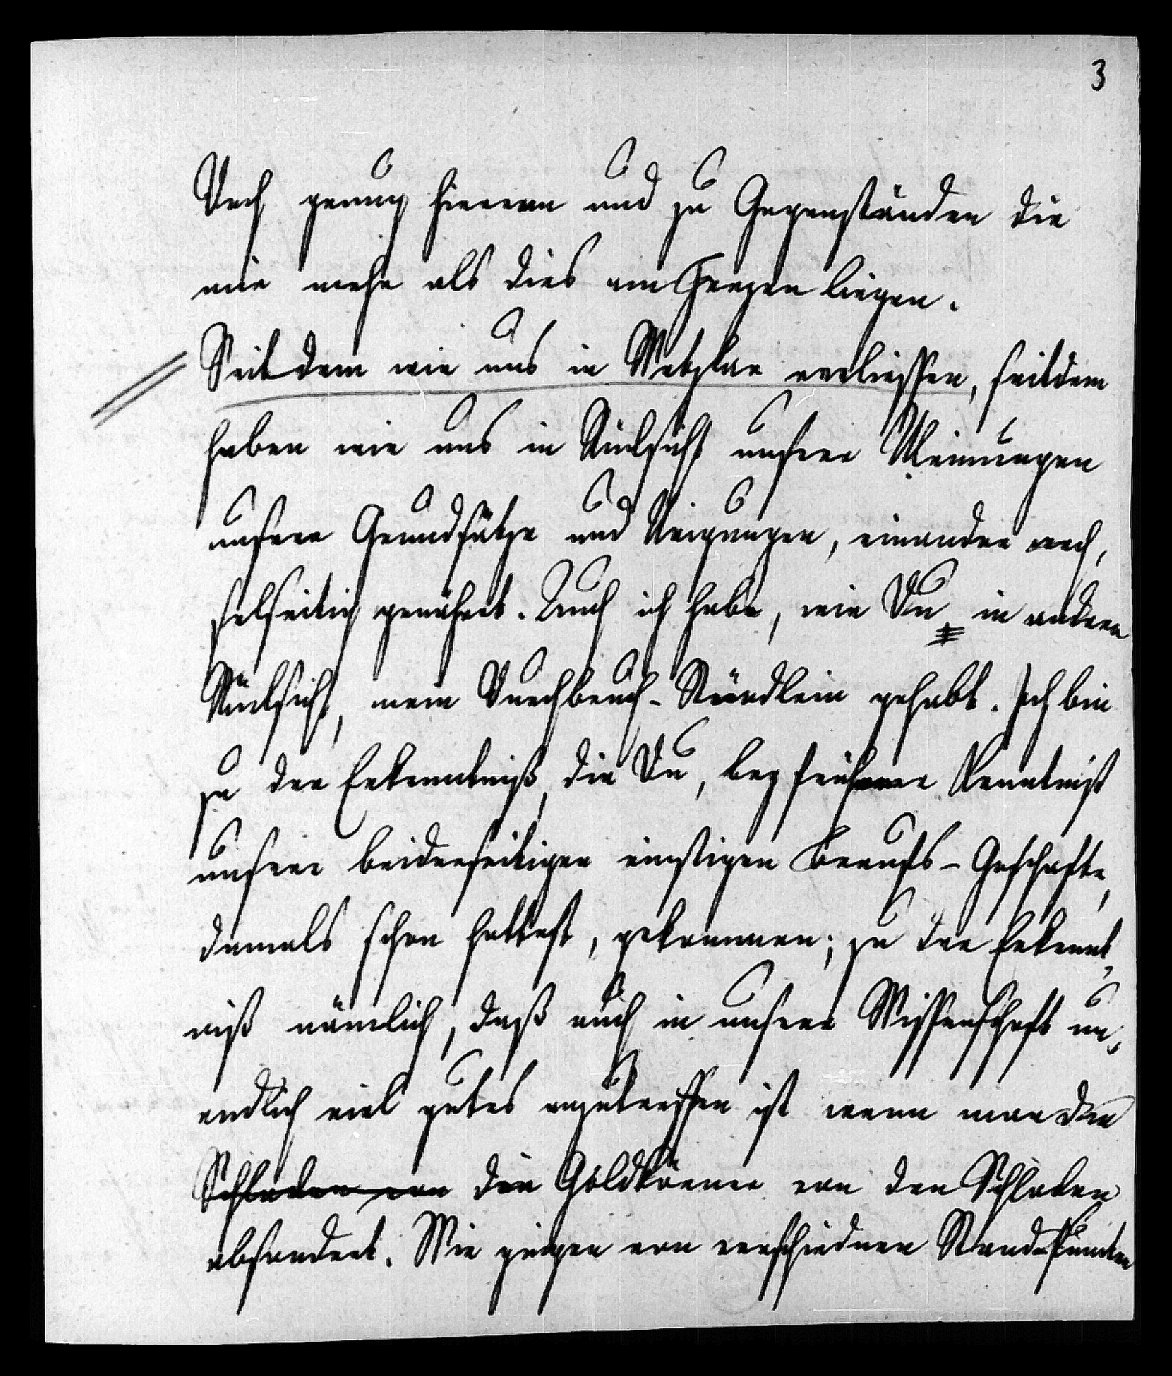 3
Doch genug hiervon und zu Gegenständen die
mir mehr als dies am Herzen liegen.
Seitdem wir uns in Wetzlar verliessen, seitdem
haben wir uns in Rücksicht unserer Meinungen
unserer Grundsätze und Neigungen, einander wech,
selseitig genähert. Auch ich habe, wie Du in andrer
Rücksicht, mein Durchbruch-Stündlein gehabt. Ich bin
zu der Erkenntniß, die Du, bey früherer Kenntnist
unserer beiderseitigen einstigen Berufs-Geschafte,
damals schon hattest, gekommen; zu der Erkennt,
niß nämlich, daß auch in unserer Wissenschaft un,
endlich viel gutes anzutreffen ist wenn man den
Schlacken von die Goldkörner von den Schlacken
absondert. Wir gingen von verschiednen Stand-Puncten